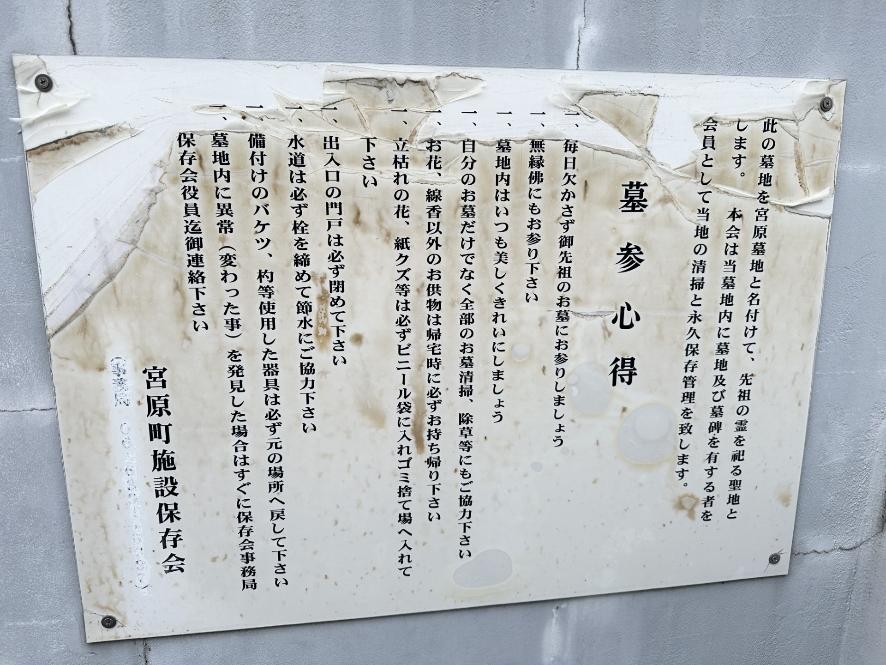 此の墓地を宮原墓地と名付けて、先祖の霊を祀る聖地と
します。 本会は当墓地内に墓地及び墓碑を有する者を
会員として当地の清掃と永久保存管理を致します。
墓参心得
一、毎日欠かさず御先祖のお墓にお参りしましょう
一、無縁佛にもお参り下さい
一、墓地内はいつも美しくきれいにしましょう
一、自分のお墓だけでなく全部のお墓清掃、除草等にもご協力下さい
一、お花、線香以外のお供物は帰宅時に必ずお持ち帰り下さい
一、立枯れの花、紙クズ等は必ずビニール袋に入れゴミ捨て場へ入れて
下さい
一、出入口の門戸は必ず閉めて下さい
一、水道は必ず栓を締めて節水にご協力下さい
一、備付けのバケツ、杓等使用した器具は必ず元の場所へ戻して下さい
一、墓地内に異常（変わった事）を発見した場合はすぐに保存会事務局
保存会役員迄御連絡下さい
宮原町施設保存会
（事務局